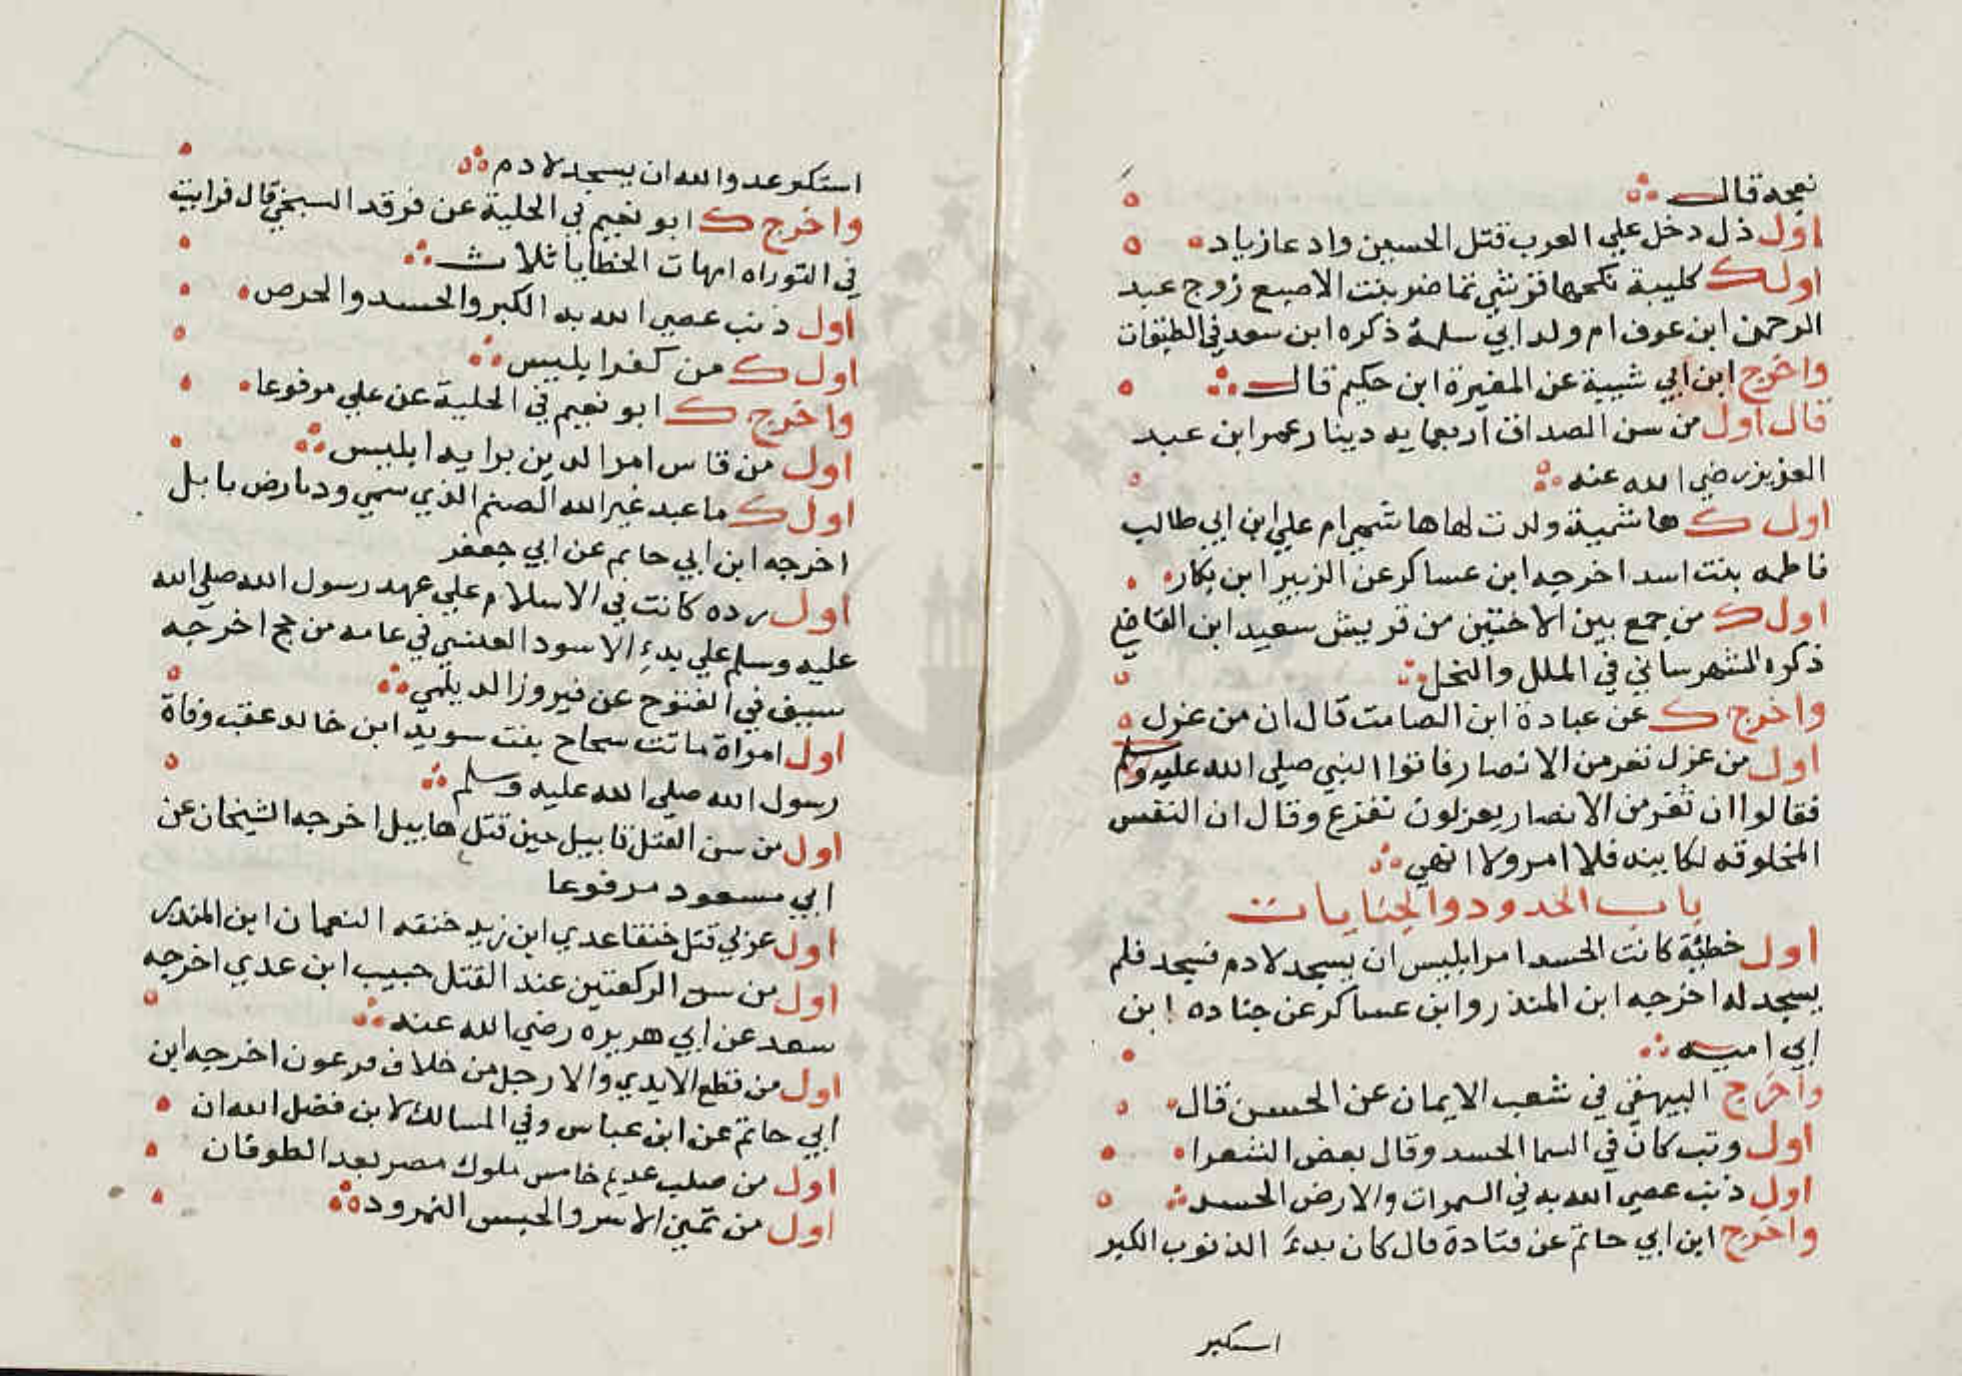 نعجه قال
اول ذل دخل علي العرب قتل الحسين وادعا زياد
اول ك كليبة نكحها قرشي تماضر بنت الاصبع زوج عبد
الرحمن ابن عوف ام ولد ابي سلمة ذكره ابن سعد في الطبقات
واخرج ابن ابي شيبة عن المغيرة ابن حكيم قال
قال اول من سن الصداق اربعمايه دينار عمر ابن عبد
العزيز رضي الله عنه
اول ك هاشمية ولدت لها هاشمي ام علي ابن ابي طالب
فاطمه بنت اسد اخرجه ابن عساكر عن الزبير ابن بكار
اول ك من جمع بين الاختين من قريش سعيد ابن العاص
ذكره الشهرساني في الملل والنحل
واخرج ك عن عبادة ابن الصامت قال ان من عزل
اول من عزل نفر من الانصار فاتوا النبي صلي الله عليه وسلم
فقالوا ان نفر من الانصار يعزلون نفزع وقال ان النفس
المخلوقه لكاينه فلا امر ولا انهي
باب الحدود والجنايات
اول خطئة كانت الحسد امر ابليس ان يسجد لادم فسجد فلم
يسجد له اخرجه ابن المنذر وابن عساكر عن جناده ابن
ابي اميه
واخرج البيهقي في شعب الايمان عن الحسن قال
اول وتب كان في السما الحسد وقال بعض الشعرا
اول ذنب عصي الله به في السموات والارض الحسد
واخرج ابن ابي حاتم عن قتادة قال كان بدء الذنوب الكبر
استكبر
استكبر عدوالله ان يسجد لادم
واخرج ك ابو نعيم في الحلية عن فرقد السبخي قال قرايت
في التوراه امهات الخطايا ثلاث
اول ذنب عصي الله به الكبر والحسد والحرص
اول ك من كفر ابليس
واخرج ك ابو نعيم في الحلية عن علي مرفوعا
اول من قاس امر الدين برايه ابليس
اول ك ما عبد غير الله الصنم الذي سمي ود بارض بابل
اخرجه ابن ابي حاتم عن ابي جعفر
اول رده كانت في الاسلام علي عهد رسول الله صلي الله
عليه وسلم علي يدء الاسود العنسي في عامه من حج اخرجه
سيف في الفتوح عن فيروز الديلمي
اول امراة ماتت سجاح بنت سويد ابن خالد عقب وفاة
رسول الله صلي الله عليه وسلم
اول من سن القتل قابيل حين قتل هابيل اخرجه الشيخان عن
ابي مسعود مرفوعا
اول عربي قتل خنقا عدي ابن زيد خنقه النعمان ابن المنذر
اول من سن الركعتين عند القتل حبيب ابن عدي اخرجه
سعد عن ابي هريره رضي الله عنه
اول من قطع الايدي والارجل من خلاف فرعون اخرجه ابن
ابي حاتم عن ابن عباس وفي المسالك لابن فضل الله ان
اول من صلب عديم خامس ملوك مصر بعد الطوفان
اول من الاسر والحبس النمرود